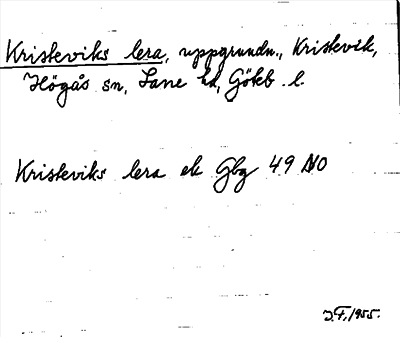 Kristeviks lera, uppgrundn., Kristevik,
Högås sn, Lane hd, Göteb. l.
Kristeviks lera ek Gbg 49 NO
J.F. 1955.